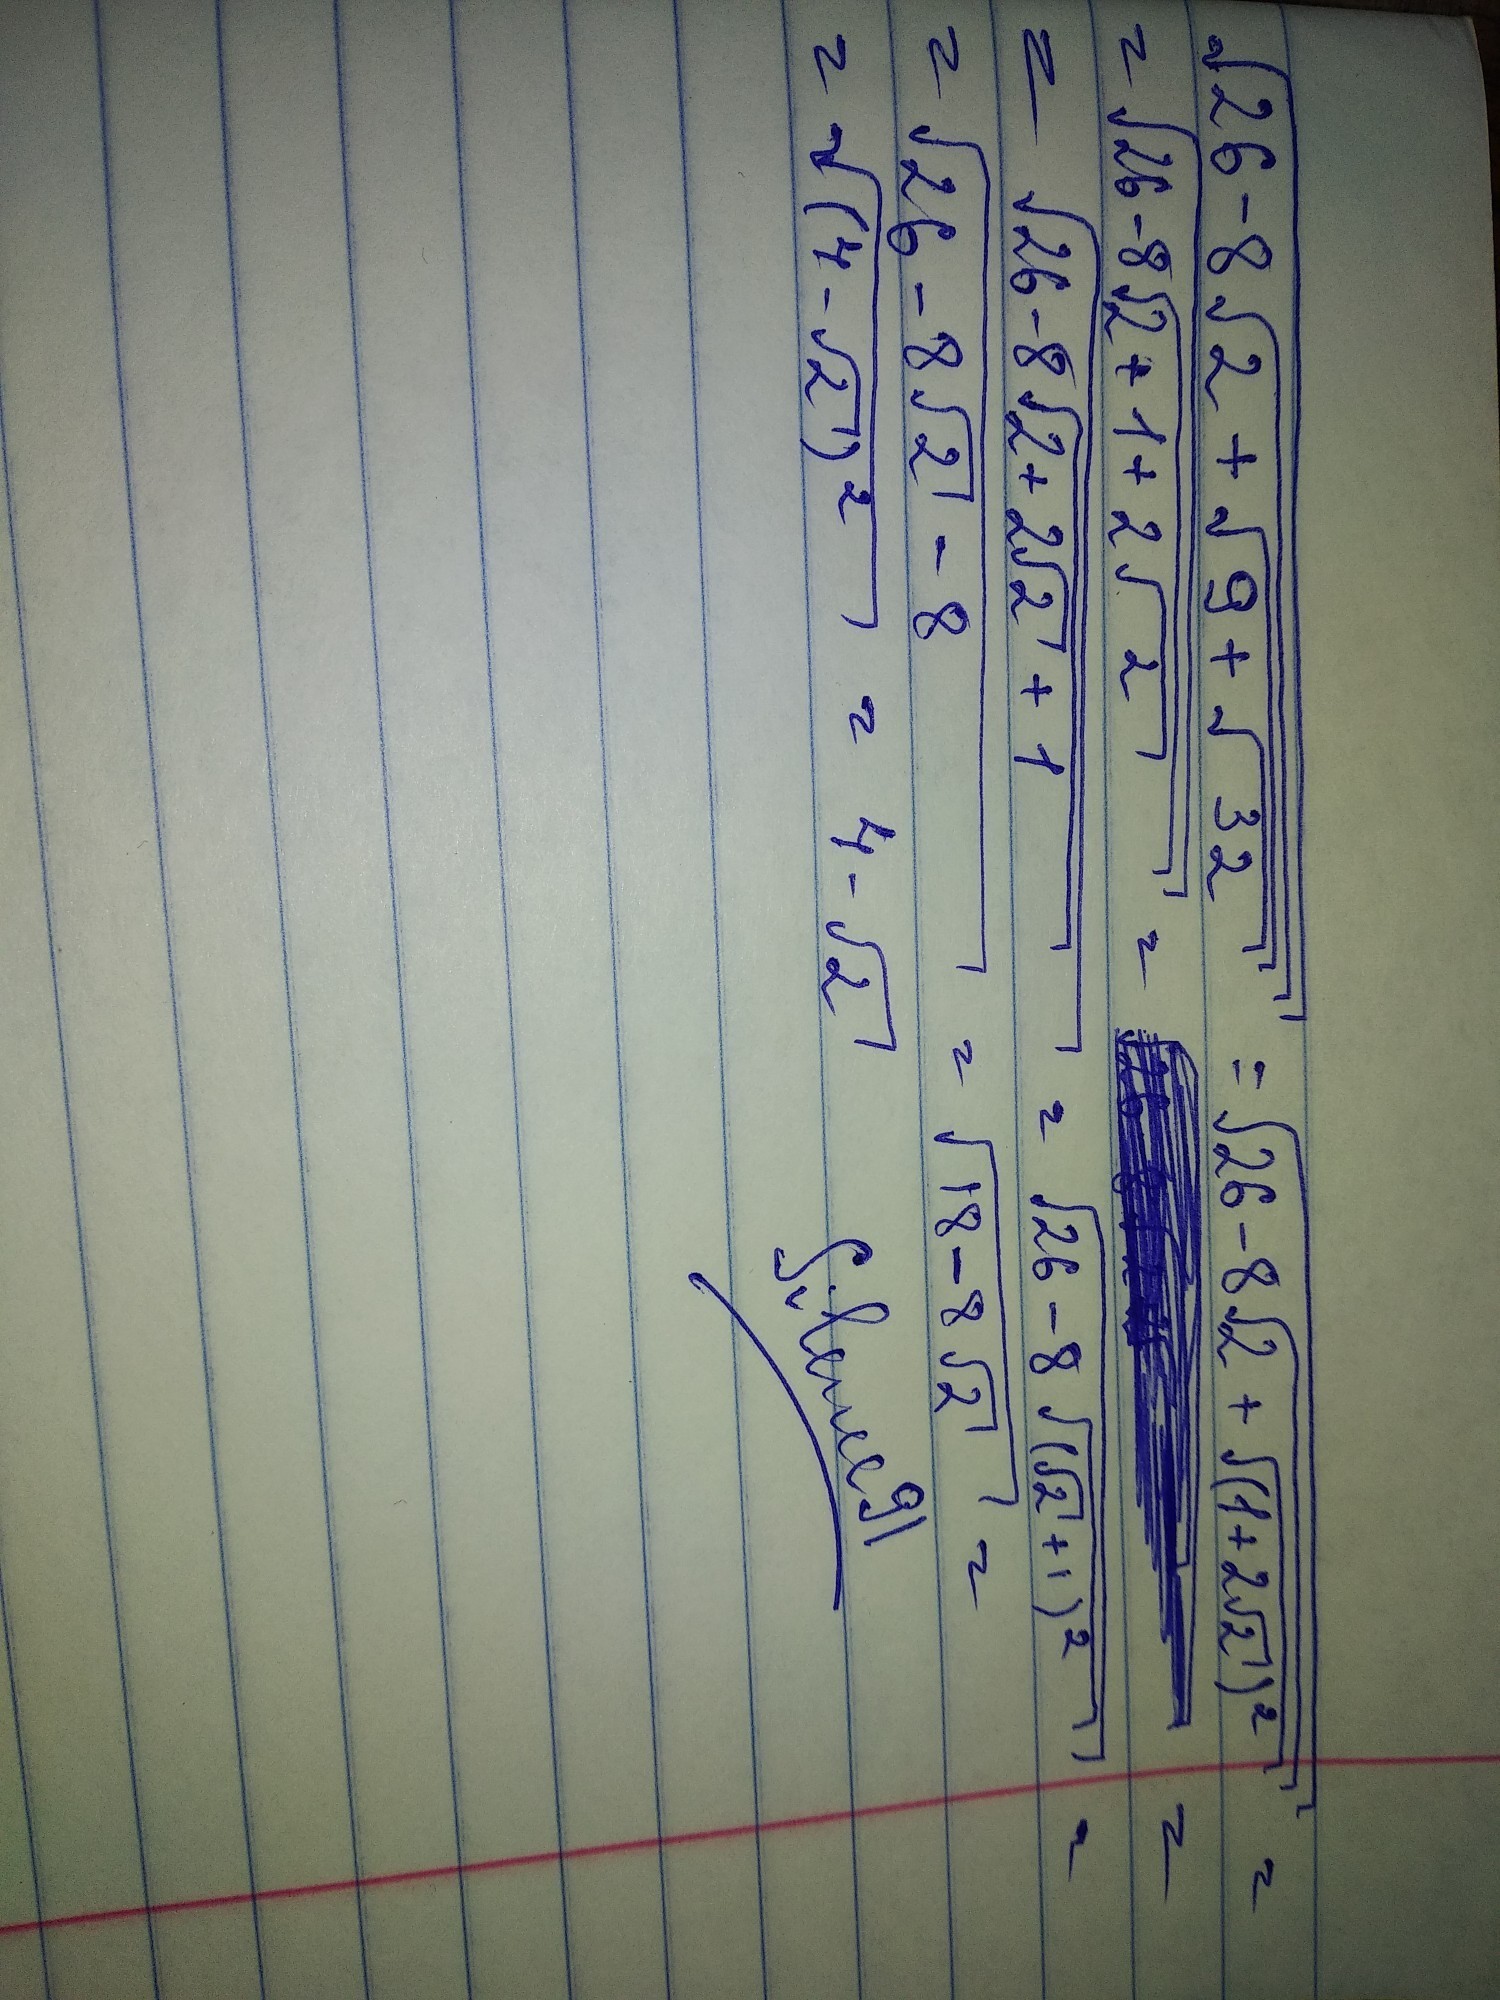 √(26-8√(2+√(9+√32))) = √(26-8√(2+√((1+2√2)²))) =
= √(26-8√(2+1+2√2)) = =
= √(26-8√(2+2√2+1)) = √(26-8√((√2+1)²)) =
= √(26-8√2-8) = √(18-8√2) =
= √((4-√2)²) = 4-√2